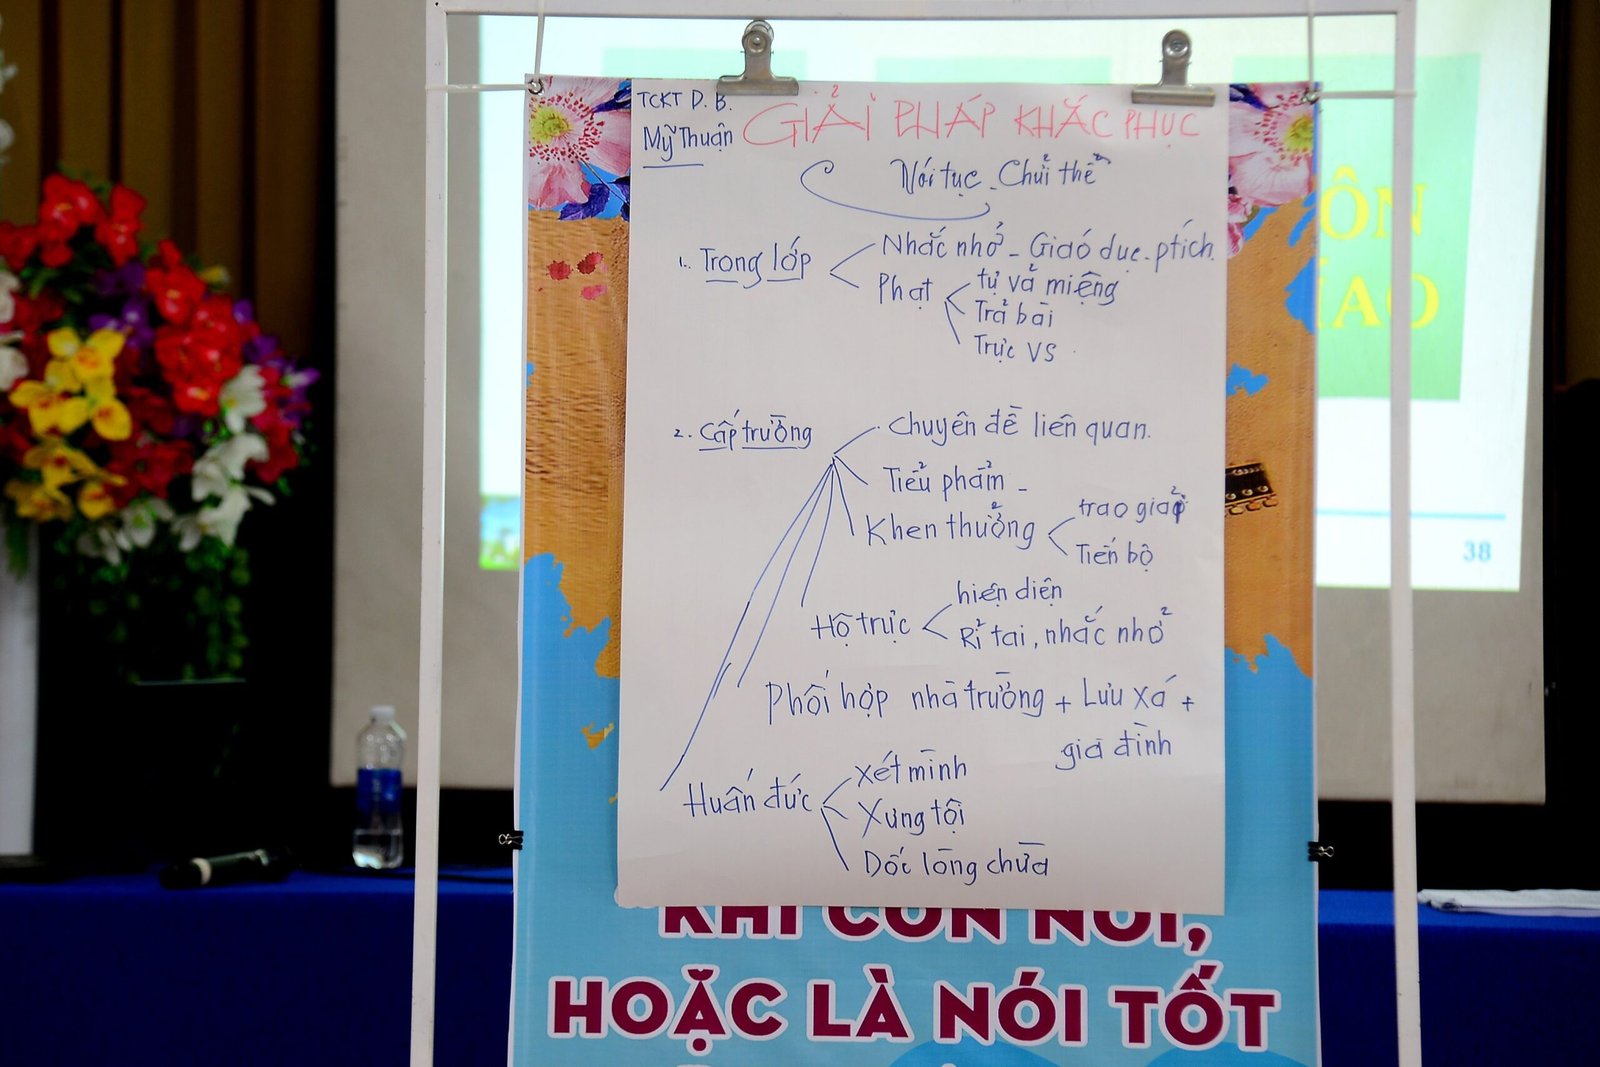 TCKT D.B.
Mỹ Thuận
GIẢI PHÁP KHẮC PHỤC
Nói tục - Chửi thề
1. Trong lớp
Nhắc nhở - Giáo dục - ptích.
Phạt
tự vả miệng
Trả bài
Trực VS
2. Cấp trường
Chuyên đề liên quan.
Tiểu phẩm -
Khen thưởng
trao giải
Tiến bộ
Hộ trực
hiện diện
Rỉ tai, nhắc nhở
Phối hợp nhà trường + Lưu xá +
gia đình
Huấn đức
Xét mình
Xưng tội
Dốc lòng chừa
KHI CON NÓI,
HOẶC LÀ NÓI TỐT
ÔN
38